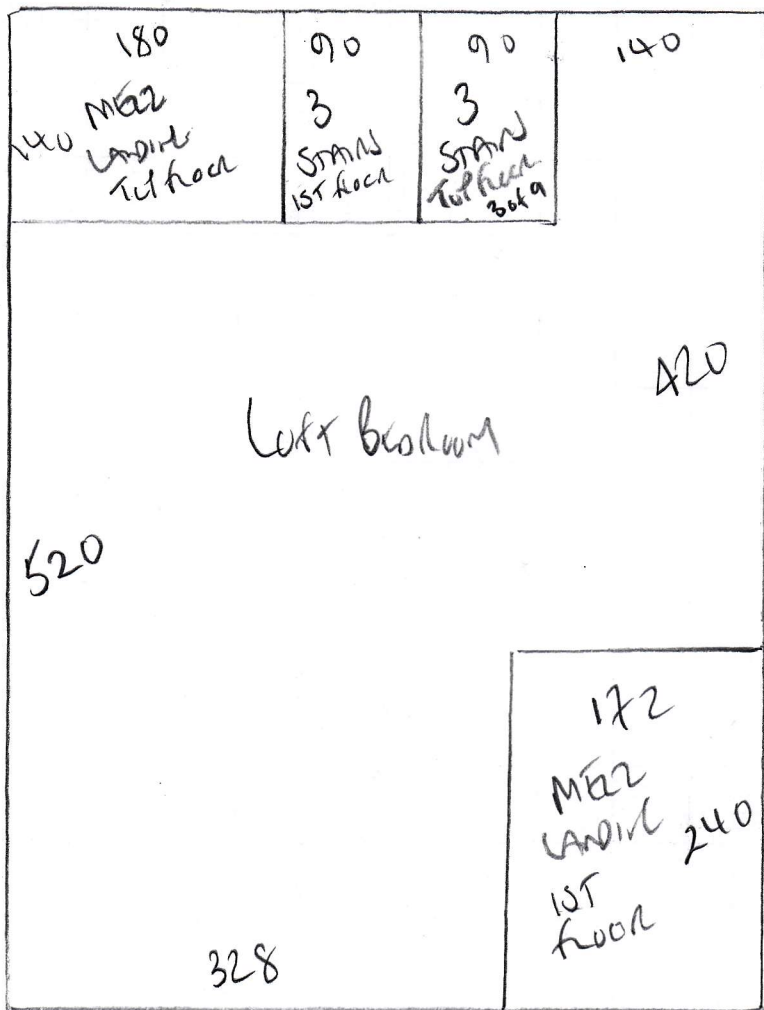 180
90
90
140
140
MEZZ
LANDING
TOP FLOOR
3
STAIRS
1ST FLOOR
3
STAIRS
TOP FLOOR
3 of 9
420
Loft Bedroom
520
172
MEZZ
LANDING
240
1ST
FLOOR
328